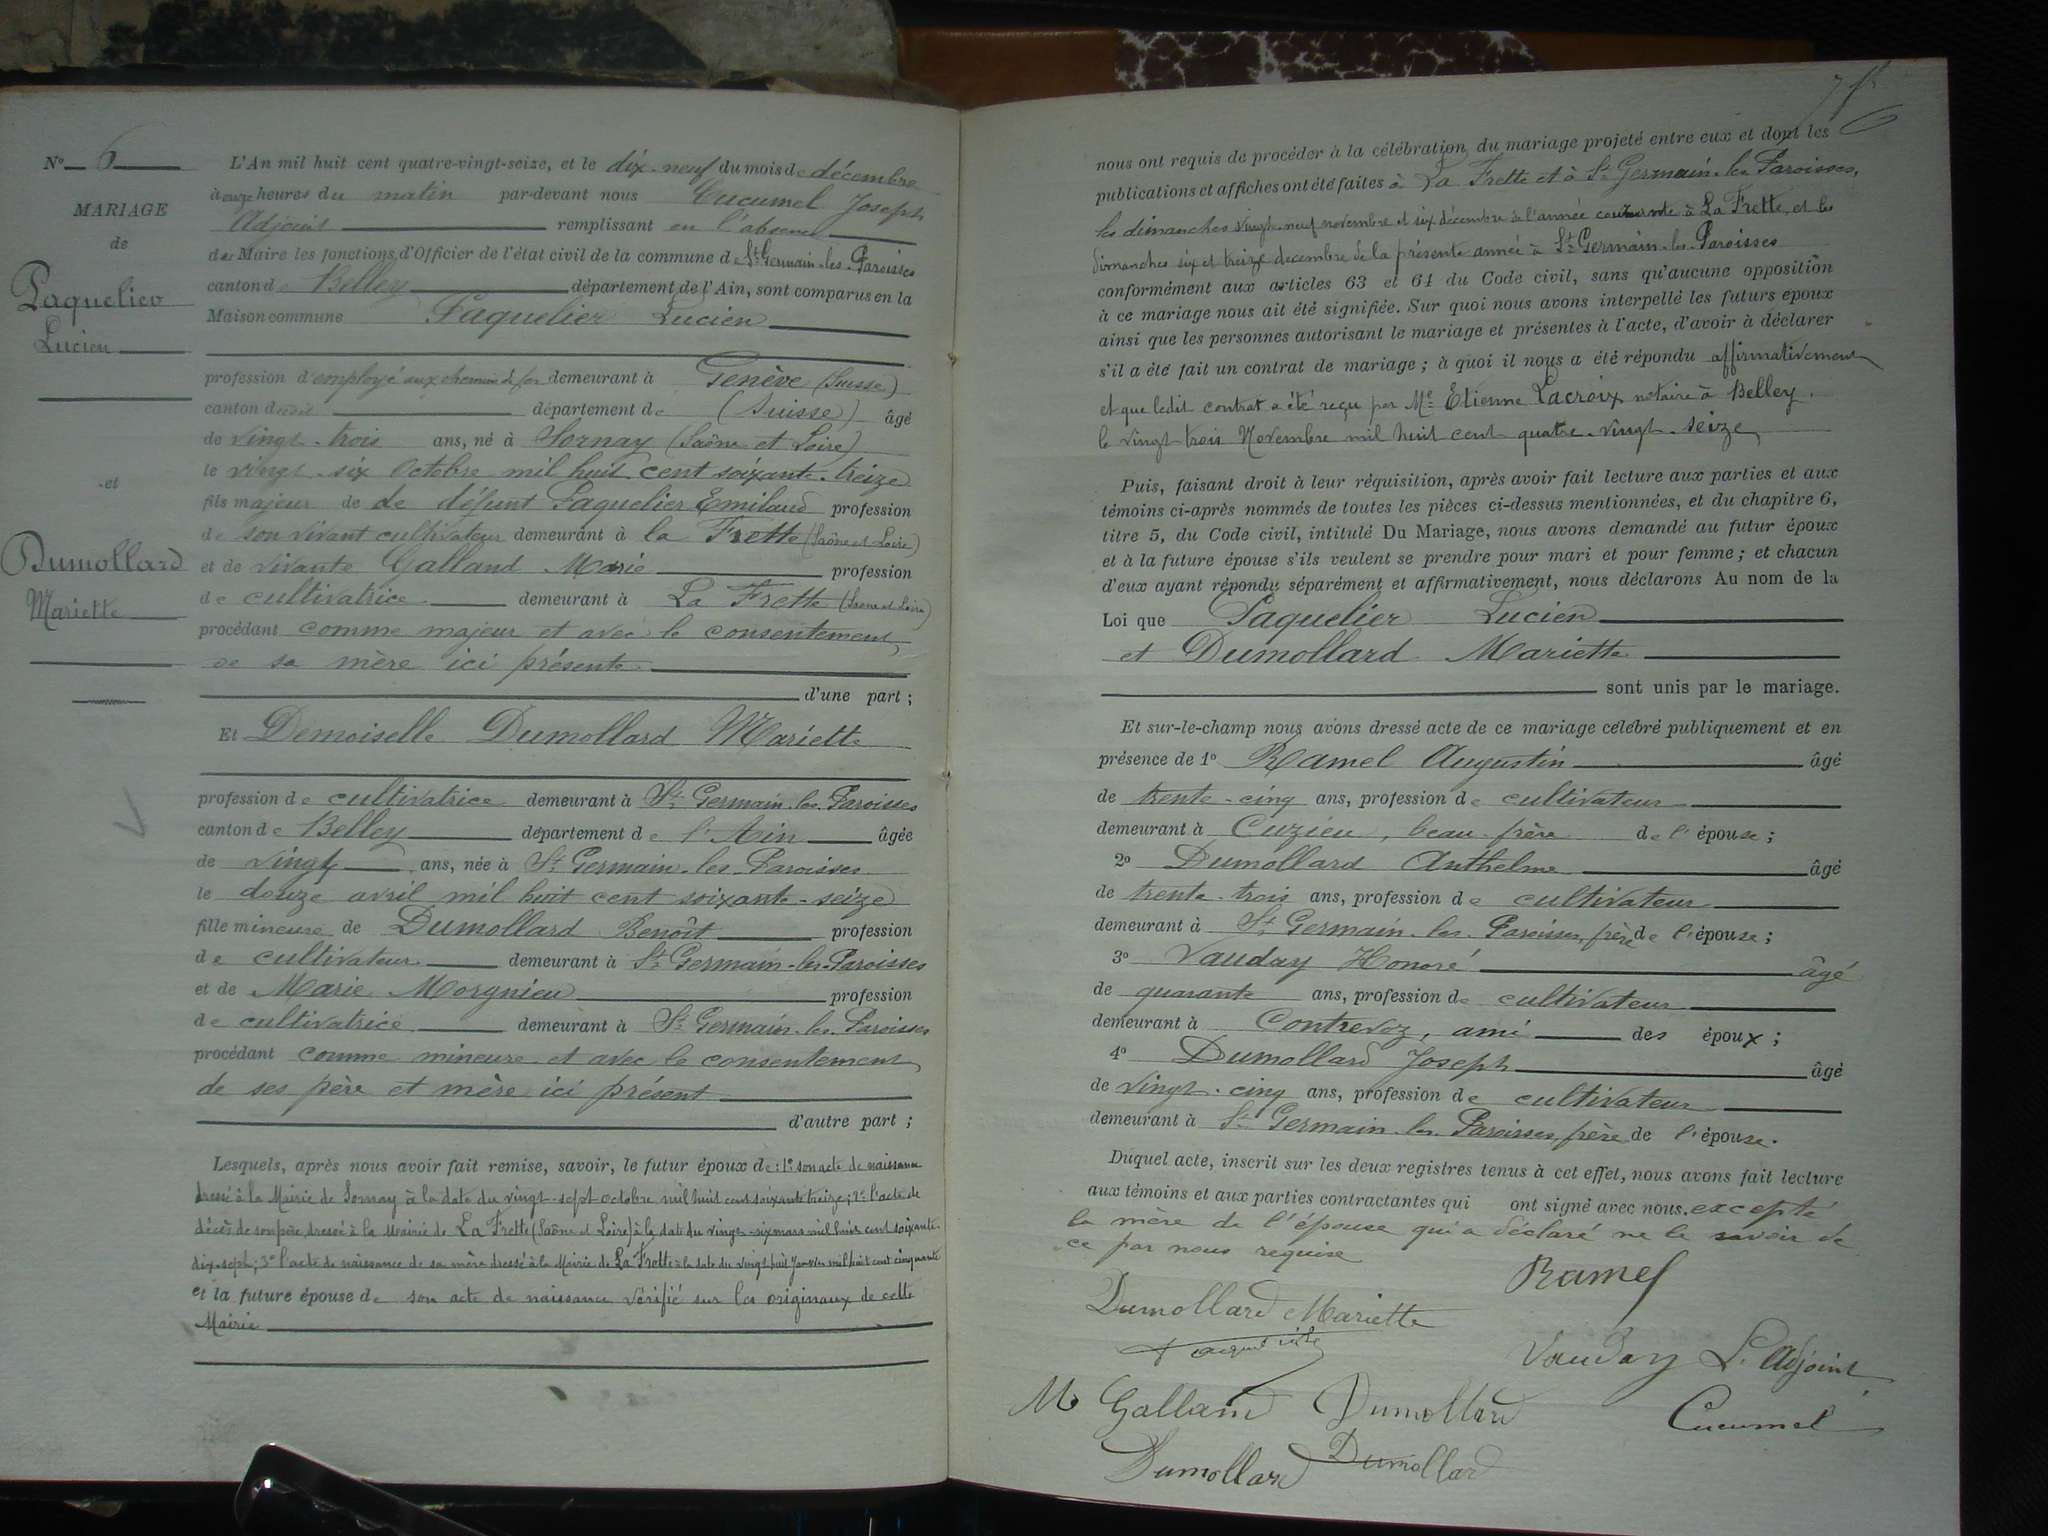 N° 6
MARIAGE
de
Paquelier
Lucien
et
Dumollard
Mariette
L'An mil huit cent quatre-vingt-seize, et le dix-neuf du mois de décembre
à onze heures du matin par-devant nous Cucumel Joseph
Adjoint remplissant en l'absence
du Maire les fonctions d'Officier de l'état civil de la commune de St Germain-les-Paroisses
canton de Belley département de l'Ain, sont comparus en la
Maison commune Paquelier Lucien
profession d'employé aux chemin de fer demeurant à Genève (Suisse)
canton dudit département de (Suisse) âgé
de vingt-trois ans, né à Sornay (Saône et Loire)
le vingt-six Octobre mil huit cent soixante-treize
fils majeur de de défunt Paquelier Emiland profession
de son vivant cultivateur demeurant à la Frette (Saône et Loire)
et de vivante Galland Marie profession
de cultivatrice demeurant à La Frette (Saône et Loire)
procédant comme majeur et avec le consentement
de sa mère ici présente
d'une part ;
Et Demoiselle Dumollard Mariette
profession de cultivatrice demeurant à St Germain-les-Paroisses
canton de Belley département de l'Ain âgée
de vingt ans, née à St Germain-les-Paroisses
le douze avril mil huit cent soixante-seize
fille mineure de Dumollard Benoît profession
de cultivateur demeurant à St Germain-les-Paroisses
et de Marie Morgnieu profession
de cultivatrice demeurant à St Germain-les-Paroisses
procédant comme mineure et avec le consentement
de ses père et mère ici présent
d'autre part ;
Lesquels, après nous avoir fait remise, savoir, le futur époux de : 1° son acte de naissance
dressé à la Mairie de Sornay à la date du vingt-sept octobre mil huit cent soixante treize ; 2° l'acte de
décès de son père, dressé à la Mairie de La Frette (Saône et Loire) à la date du vingt-six mars mil huit cent soixante-
dix-sept ; 3° l'acte de naissance de sa mère dressé à la Mairie de La Frette à la date du vingt huit Janvier mil huit cent cinquante
et la future épouse de son acte de naissance vérifié sur les originaux de cette
Mairie
6
nous ont requis de procéder à la célébration du mariage projeté entre eux et dont les
publications et affiches ont été faites à La Frette et à St Germain-les-Paroisses,
les dimanches vingt-neuf novembre et six décembre de l'année courante à La Frette, et les
dimanches six et treize decembre de la présente année à St Germain-les-Paroisses
conformément aux articles 63 et 64 du Code civil, sans qu'aucune opposition
à ce mariage nous ait été signifiée. Sur quoi nous avons interpellé les futurs époux
ainsi que les personnes autorisant le mariage et présentes à l'acte, d'avoir à déclarer
s'il a été fait un contrat de mariage ; à quoi il nous a été répondu affirmativement
et que ledit contrat a été reçu par Me Etienne Lacroix notaire à Belley.
le vingt trois Novembre mil huit cent quatre-vingt-seize
Puis, faisant droit à leur réquisition, après avoir fait lecture aux parties et aux
témoins ci-après nommés de toutes les pièces ci-dessus mentionnées, et du chapitre 6,
titre 5, du Code civil, intitulé Du Mariage, nous avons demandé au futur époux
et à la future épouse s'ils veulent se prendre pour mari et pour femme ; et chacun
d'eux ayant répondu séparément et affirmativement, nous déclarons Au nom de la
Loi que Paquelier Lucien
et Dumollard Mariette
sont unis par le mariage.
Et sur-le-champ nous avons dressé acte de ce mariage célébré publiquement et en
présence de 1° Ramel Augustin âgé
de trente-cinq ans, profession de cultivateur
demeurant à Cuzieu, beau-frère de l'épouse ;
2° Dumollard Anthelme âgé
de trente-trois ans, profession de cultivateur
demeurant à St Germain-les-Paroisses, frère de l'épouse ;
3° Vauday Honoré âgé
de quarante ans, profession de cultivateur
demeurant à Contrevoz, ami des époux ;
4° Dumollard Joseph âgé
de vingt-cinq ans, profession de cultivateur
demeurant à St Germain-les-Paroisses, frère de l'épouse.
Duquel acte, inscrit sur les deux registres tenus à cet effet, nous avons fait lecture
aux témoins et aux parties contractantes qui ont signé avec nous. excepté
la mère de l'épouse qui a déclaré ne le savoir de
ce par nous requise
Ramel
Dumollard Mariette
Vauday L'Adjoint
M Galland Dumollard Cucumel
Dumollard Dumollard